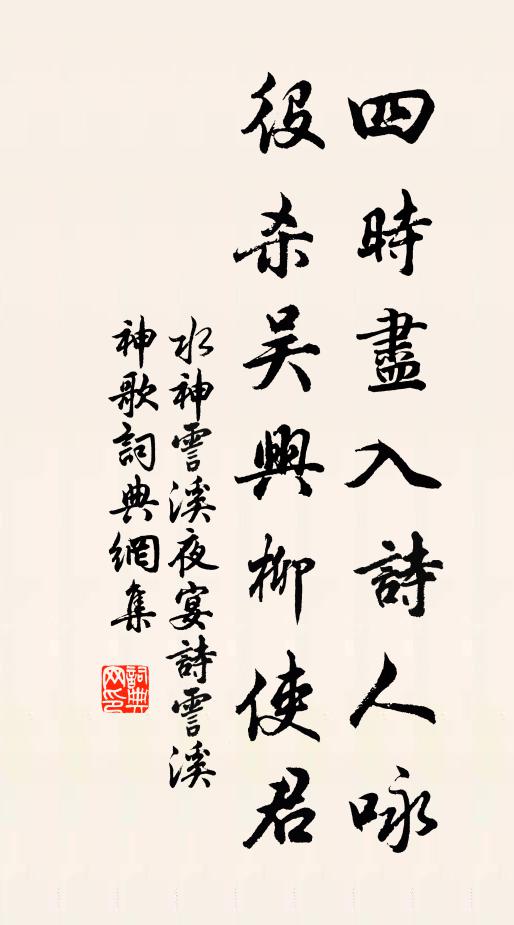 四時盡入詩人咏
役杀吴興柳使君
水神雲溪夜宴詩雲溪
神歌詞典網集
詞典
网印